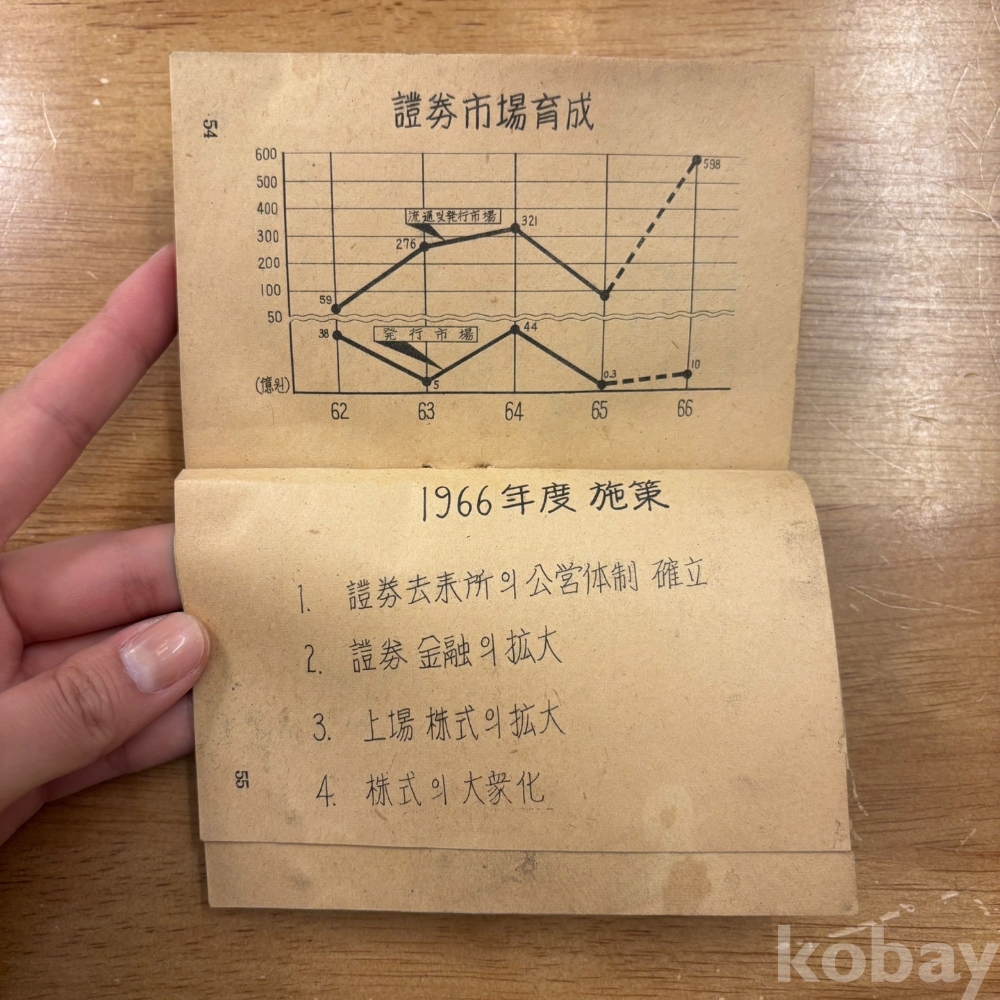 54
證券市場育成
600
500
400
300
200
100
50
(億원)
流通및発行市場
発行市場
59
276
321
598
38
5
44
0.3
10
62 63 64 65 66
1966年度 施策
1. 證券去来所의 公営体制 確立
2. 證券 金融의 拡大
3. 上場 株式의 拡大
4. 株式의 大衆化
55
kobay